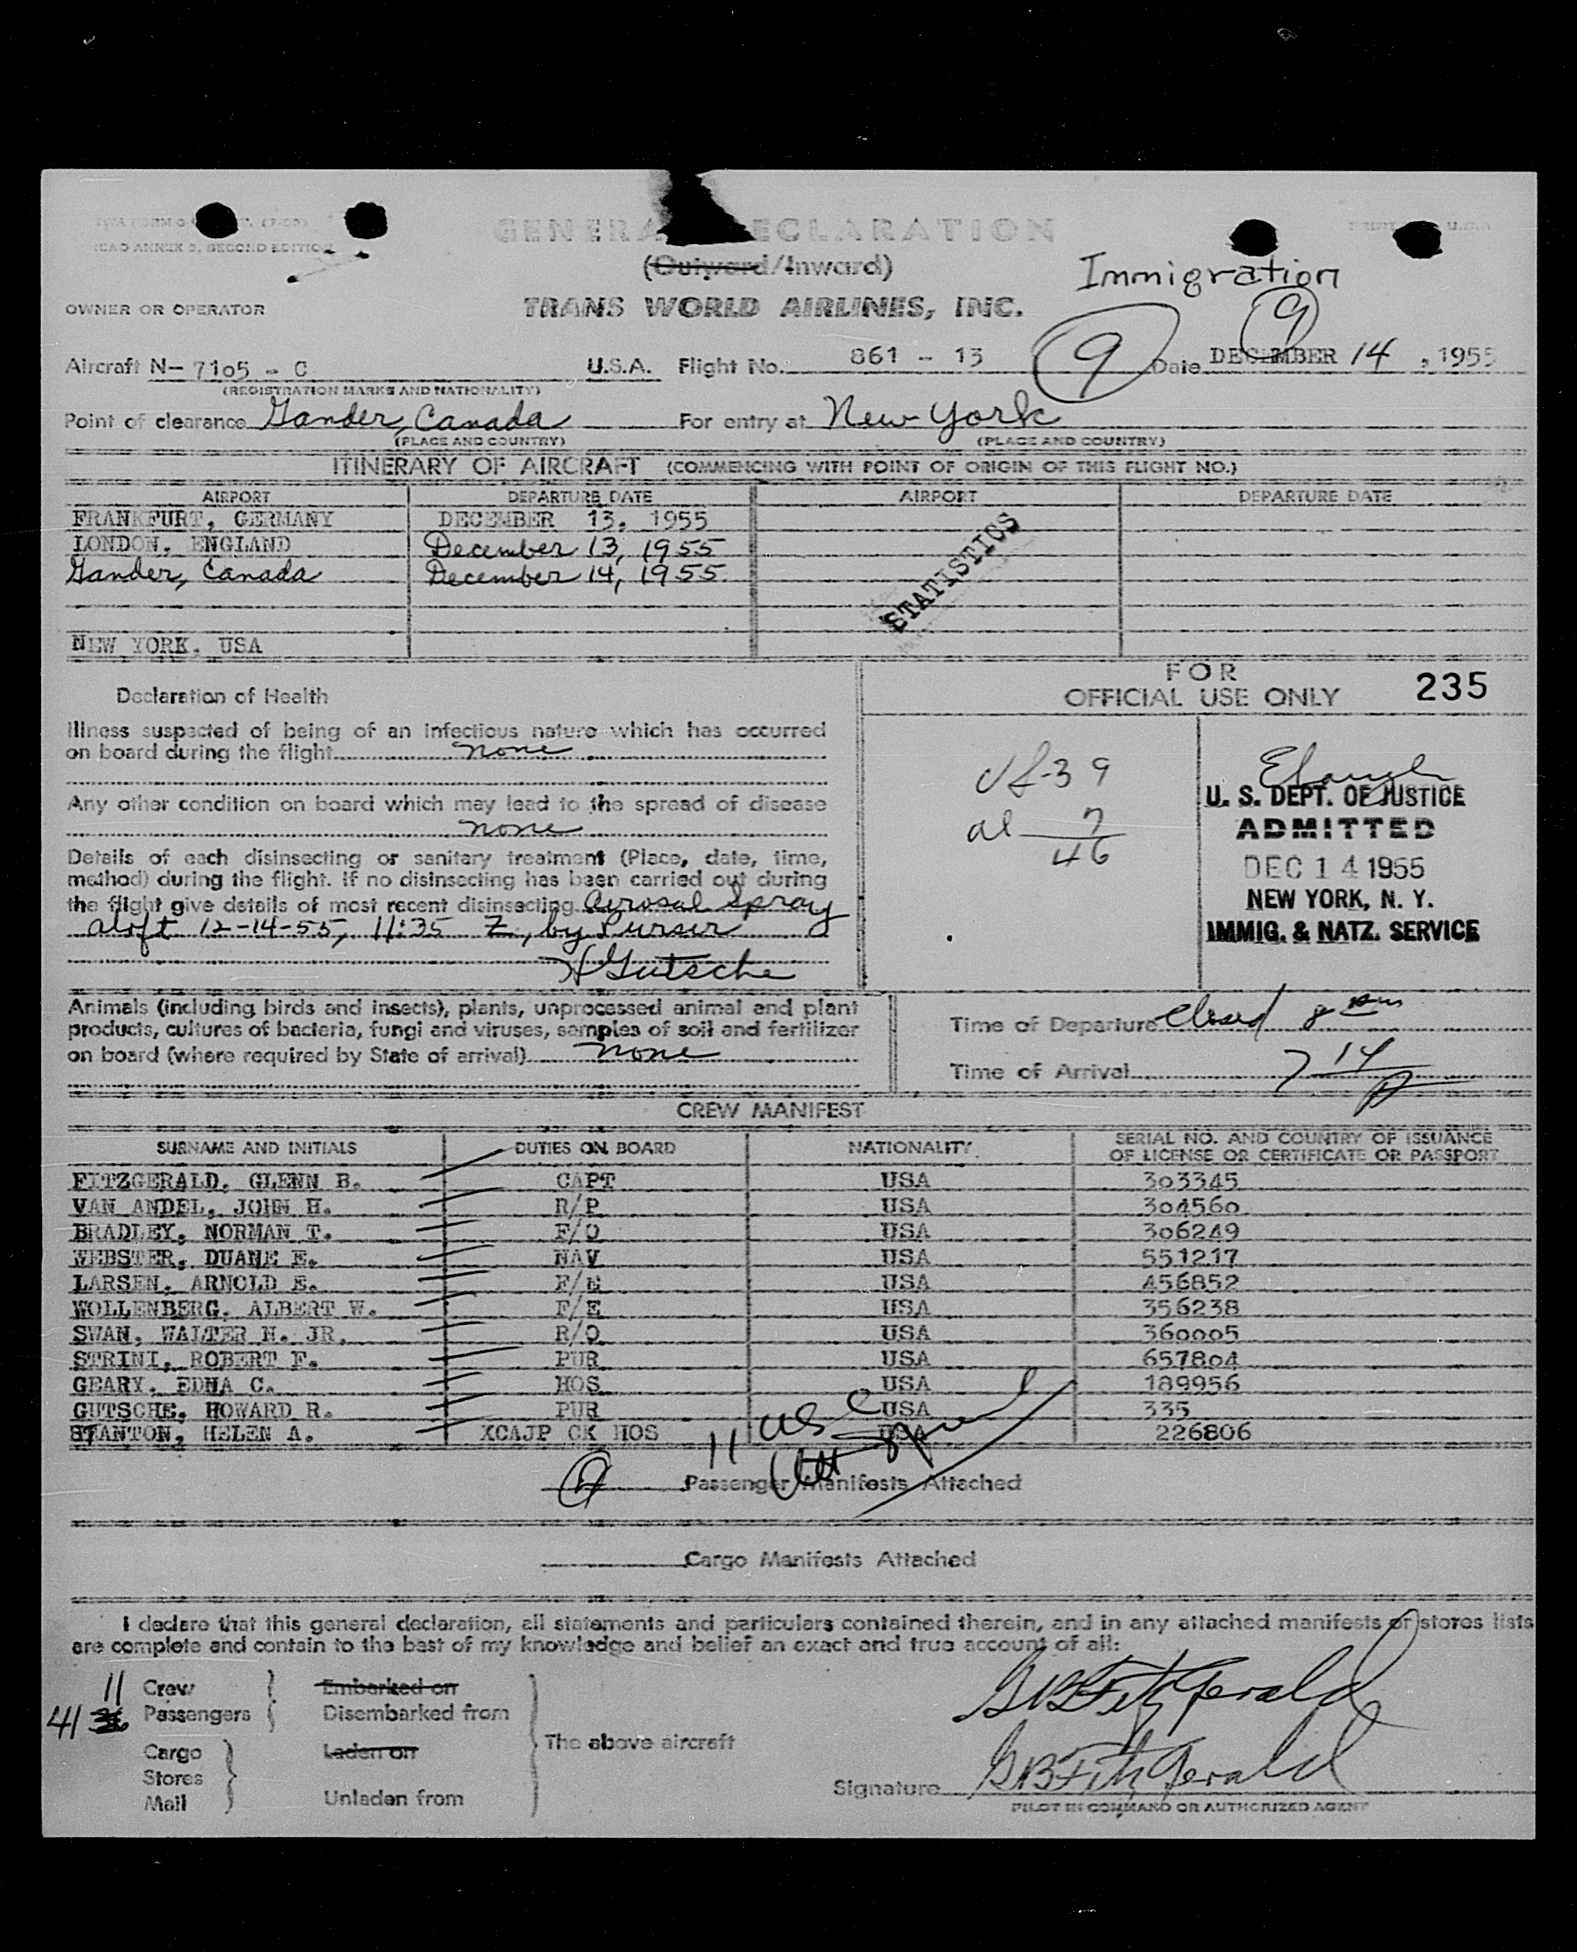 ICAO ANNEX 9, SECOND EDITION
GENERAL DECLARATION
(Outward/Inward)
Immigration
9
OWNER OR OPERATOR
TRANS WORLD AIRLINES, INC.
Aircraft N- 7105 - C U.S.A. Flight No. 861 - 13 9 Date DECEMBER 14, 1955
(REGISTRATION MARKS AND NATIONALITY)
Point of clearance Gander, Canada For entry at New York
(PLACE AND COUNTRY) (PLACE AND COUNTRY)
ITINERARY OF AIRCRAFT (COMMENCING WITH POINT OF ORIGIN OF THIS FLIGHT NO.)
AIRPORT DEPARTURE DATE AIRPORT DEPARTURE DATE
FRANKFURT, GERMANY DECEMBER 13, 1955
LONDON, ENGLAND December 13, 1955
Gander, Canada December 14, 1955
STATISTICS
NEW YORK, USA
FOR
OFFICIAL USE ONLY 235
Declaration of Health
Illness suspected of being of an infectious nature which has occurred
on board during the flight none
Any other condition on board which may lead to the spread of disease
none
Details of each disinsecting or sanitary treatment (Place, date, time,
method) during the flight. If no disinsecting has been carried out during
the flight give details of most recent disinsecting Aerosal Spray
aloft 12-14-55, 11:35 Z, by Purser
H Gutsche
39
al 7
46
U. S. DEPT. OF JUSTICE
ADMITTED
DEC 14 1955
NEW YORK, N. Y.
IMMIG. & NATZ. SERVICE
Animals (including birds and insects), plants, unprocessed animal and plant
products, cultures of bacteria, fungi and viruses, samples of soil and fertilizer
on board (where required by State of arrival) none
Time of Departure closed 8
Time of Arrival 7 14
CREW MANIFEST
SURNAME AND INITIALS DUTIES ON BOARD NATIONALITY SERIAL NO. AND COUNTRY OF ISSUANCE
OF LICENSE OR CERTIFICATE OR PASSPORT
FITZGERALD, GLENN B. CAPT USA 303345
VAN ANDEL, JOHN H. R/P USA 304560
BRADLEY, NORMAN T. F/O USA 306249
WEBSTER, DUANE E. NAV USA 551217
LARSEN, ARNOLD E. F/E USA 456852
WOLLENBERG, ALBERT W. F/E USA 356238
SWAN, WALTER H. JR. R/O USA 360005
STRINI, ROBERT F. PUR USA 657804
GEARY, EDNA C. HOS USA 189956
GUTSCHE, HOWARD R. PUR USA 335
STANTON, HELEN A. XCAJP CK HOS USA 226806
11 USC
Passenger Manifests Attached
Cargo Manifests Attached
I declare that this general declaration, all statements and particulars contained therein, and in any attached manifests or stores lists
are complete and contain to the best of my knowledge and belief an exact and true account of all:
11 Crew Embarked on
41 Passengers Disembarked from
The above aircraft
Cargo Laden on
Stores
Mail Unladen from
GB FitzGerald
Signature GB FitzGerald
PILOT IN COMMAND OR AUTHORIZED AGENT